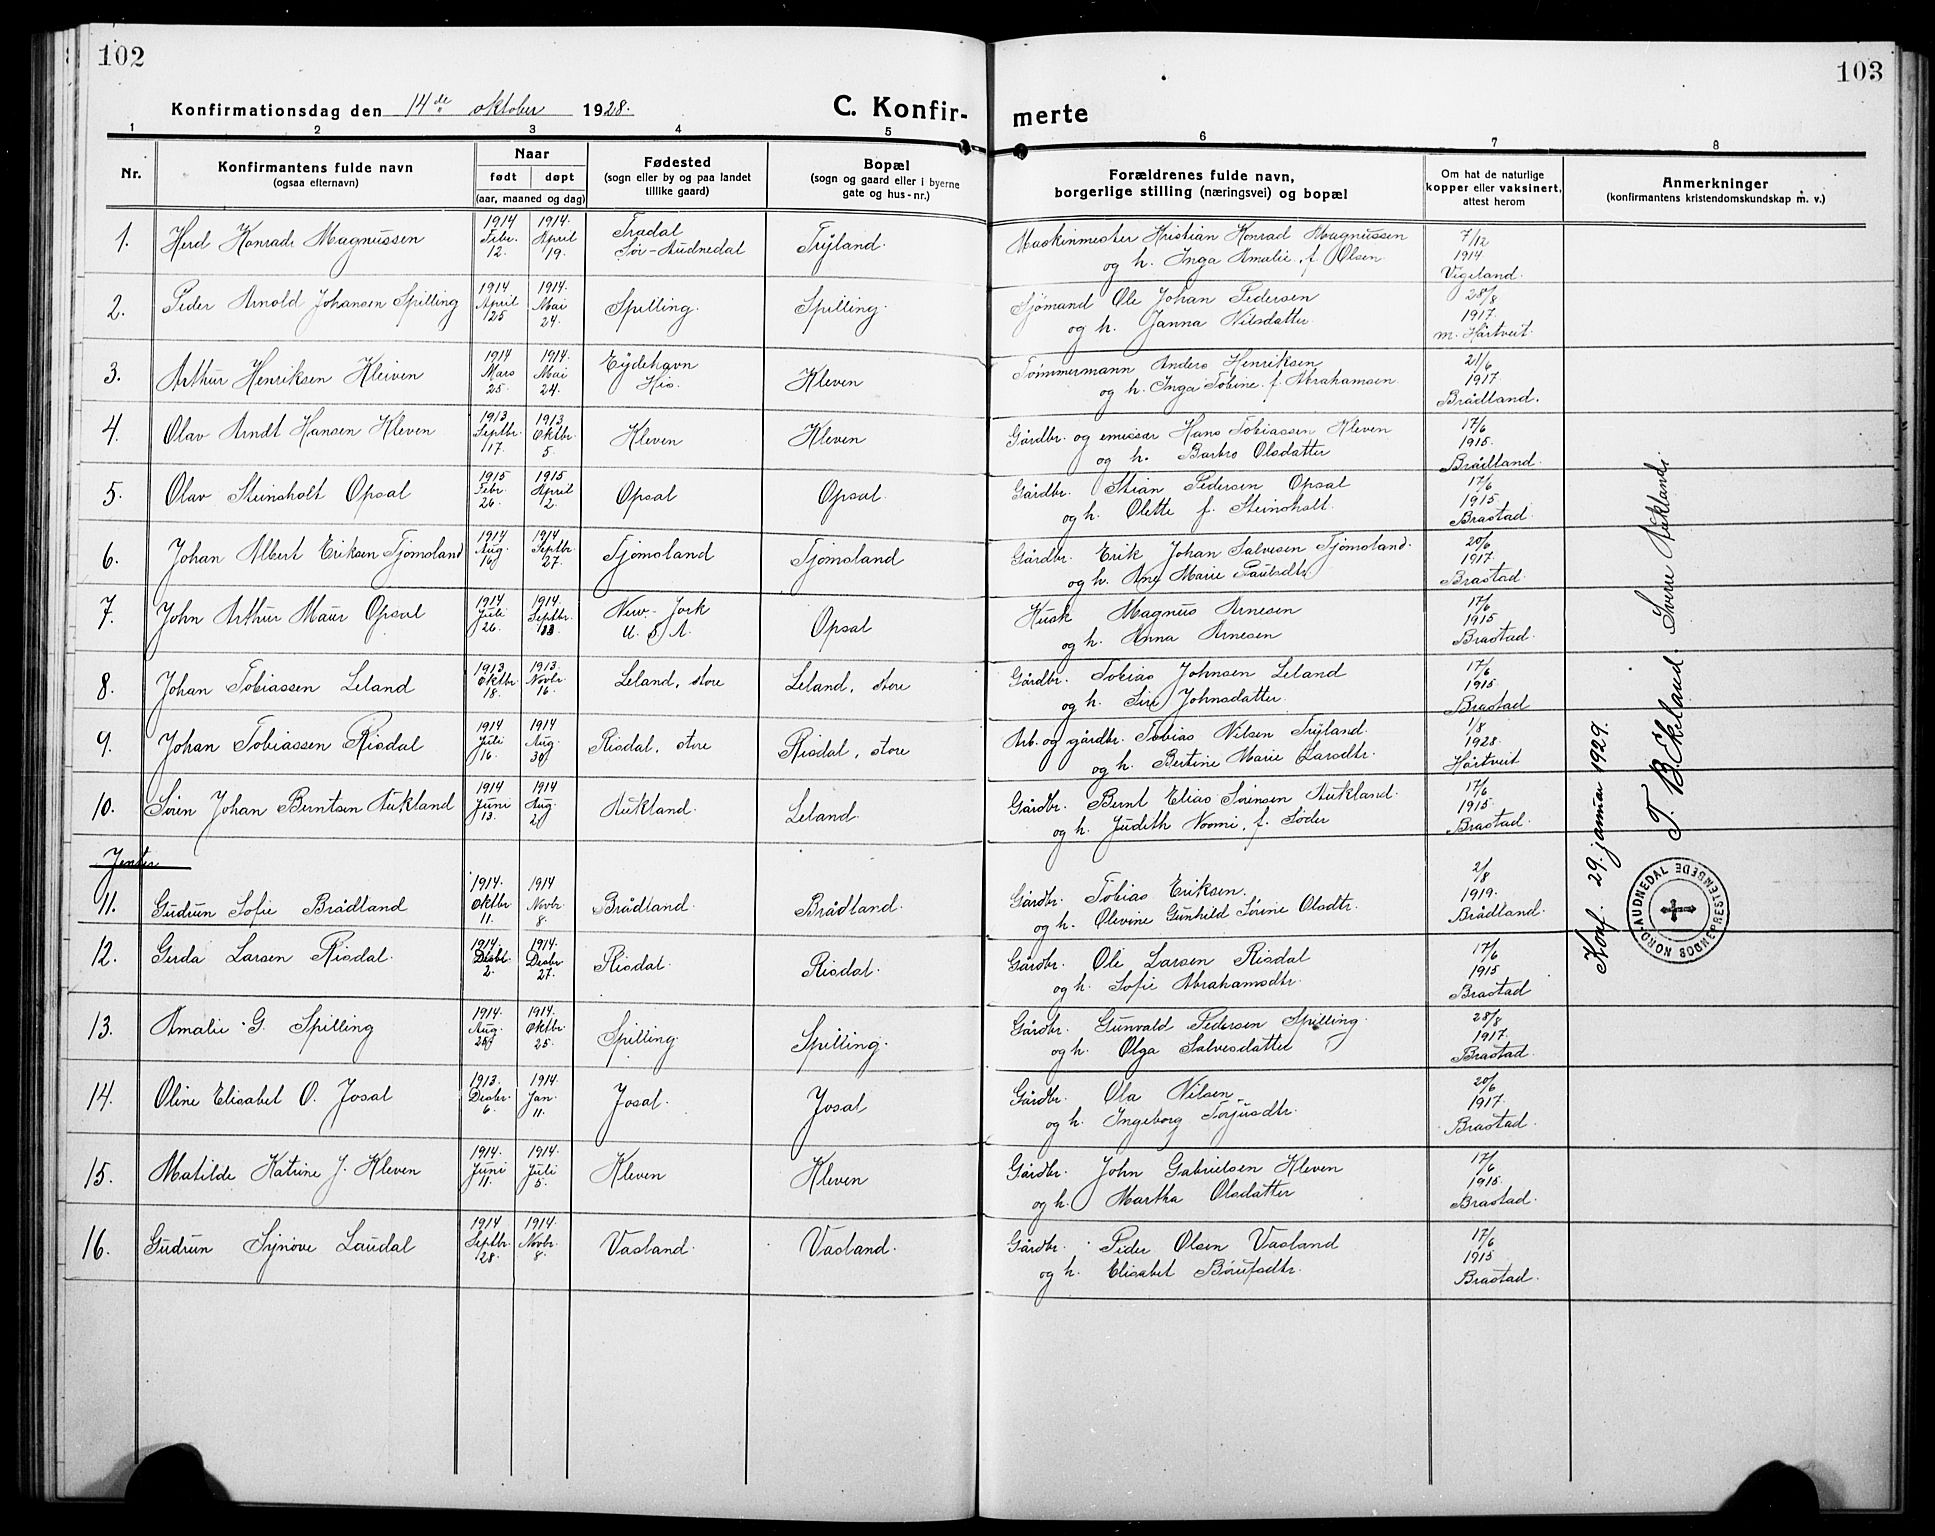 102
103
Konfirmationsdag den 14de oktober 1928.
C. Konfir-
merte
1 2 3 4 5 6 7 8
Nr.
Konfirmantens fulde navn
(ogsaa efternavn)
Naar
født døpt
(aar, maaned og dag)
Fødested
(sogn eller by og paa landet
tillike gaard)
Bopæl
(sogn og gaard eller i byerne
gate og hus-nr.)
Forældrenes fulde navn,
borgerlige stilling (næringsvei) og bopæl
Om hat de naturlige
kopper eller vaksinert,
attest herom
Anmerkninger
(konfirmantens kristendomskundskap m. v.)
1. Herd Konrad Magnussen 1914 Febr. 12. 1914. April 19. Tradal Sør-Audnedal Tryland. Maskinmester Kristian Konrad Magnussen 7/12
og h. Inga Amalie, f. Olsen 1914 Vigeland.
2. Peder Arnold Johansen Spilling 1914 April 25 1914. Mai 24. Spilling. Spilling. Sjömand Ole Johan Pedersen 28/8
og h. Janna Nilsdatter. 1917. m. Hårtveit.
3. Arthur Henriksen Kleiven 1914 Mars 25. 1914. Mai 24. Eydehavn Kleven Tömmermann Anders Henriksen 21/6
og h. Inga Tobine f. Abrahamsen. 1917. Brådland.
4. Olav Arndt Hansen Kleven 1913 Septbr. 17. 1913. Oktbr. 5. Kleven Kleven Gårdbr. og emissær Hans Tobiassen Kleven 17/6
og h. Barbro Olsdatter 1915. Brådland.
5. Olav Steinsholt Opsal 1915 Febr. 26. 1915 April 2. Opsal Opsal. Gårdbr. Stian Pedersen Opsal 17/6
og h. Olette f. Steinsholt. 1915. Brastad.
6. Johan Albert Eriksen Tjömsland 1914 Aug. 16 1914 Septbr. 27. Tjömsland Tjömsland Gårdbr. Erik Johan Salvesen Tjömsland. 20/6
og h. Ane Marie Paulsdtr 1917. Brastad.
7. John Arthur Maur Opsal 1914 Juli 26. 1914. Septbr. New-Jork U. S. A. Opsal Husk Magnus Arnesen 17/6
og h. Anna Arnesen 1915 Brastad.
8. Johan Tobiassen Leland 1913 Oktbr 18. 1913. Novbr 16. Leland, store Leland, store Gårdbr. Tobias Johnsen Leland 17/6
og h. Siri Johnsdatter. 1915 Brastad
9. Johan Tobiassen Risdal 1914 Juli 16. 1914 Aug. 30 Risdal, store Risdal, store Arb. og gårdbr. Tobias Nilsen Tryland. 1/8
og h. Bertine Marie Larsdtr. 1928. Hårtveit
10. Sören Johan Berntsen Aukland 1914 Juni 13. 1914 Aug. 2 Aukland. Leland. Gårdbr. Bernt Elias Sörensen Aukland. 17/6
og h. Judith Noomi, f. Söder 1915. Brastad.
Jenter
11. Gudrun Sofie Brådland 1914. Oktbr 11. 1914 Novbr. 8. Brådland. Brådland. Gårdbr. Tobias Eriksen. 2/8
og h. Olevine Gunhild Sörine Olsdtr. 1919. Brådland.
12. Gerda Larsen Risdal. 1914. Desbr. 2. 1914. Desbr. 27. Risdal. Risdal. Gårdbr. Ole Larsen Risdal 17/6
og h. Sofie Abrahamsdtr. 1915 Brastad
13. Amalie G. Spilling 1914. Aug. 25 1914. Oktbr. 25. Spilling. Spilling. Gårdbr. Gunvald Pedersen Spilling. 28/8
og h. Olga Salvesdatter 1917. Brastad.
14. Oline Elisabet O. Josal 1913. Desbr. 6. 1914. Jan. 11. Josal. Josal Gårdbr. Ola Nilsen 20/6
og h. Ingeborg Torjusdtr. 1917. Brastad.
15. Matilde Katrine J. Kleven 1914. Juni 11. 1914. Juli 5. Kleven Kleven Gårdbr. John Gabrielsen Kleven 17/6
og h. Martha Olsdatter 1915. Brastad.
16. Gudrun Synöve Laudal 1914 Septbr. 28. 1914. Novbr. 8. Vasland. Vasland. Gårdbr. Peder Olsen Vasland 17/6
og h. Elisabet Börufsdtr. 1915 Brastad.
Konf. 29. januar 1929.
T. B. Ekland Sverre Aukland
NORD-AUDNEDAL SOGNEPRESTEMBEDE